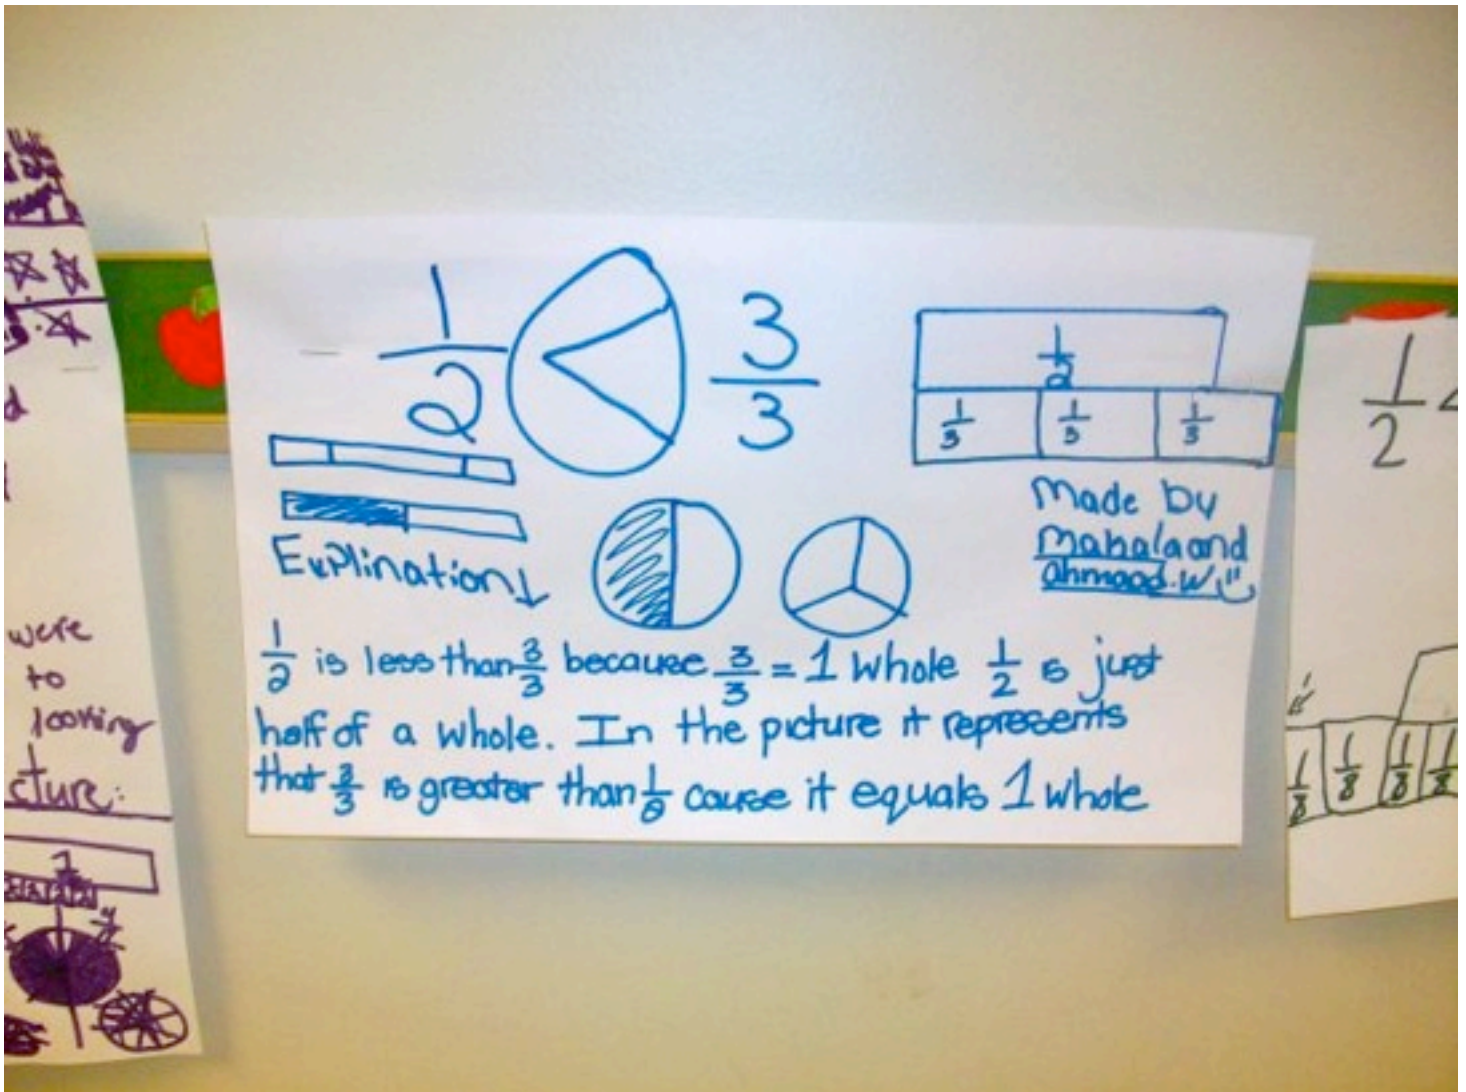 1/2 < 3/3
1/2
1/3 1/3 1/3
Made by
Mahala and
ahmaad.W
Explination↓
1/2 is less than 3/3 because 3/3 = 1 whole 1/2 is just
half of a whole. In the picture it represents
that 3/3 is greater than 1/2 cause it equals 1 whole
were
to
looking
cture:
1/2 <
1/8 1/8 1/8 1/8